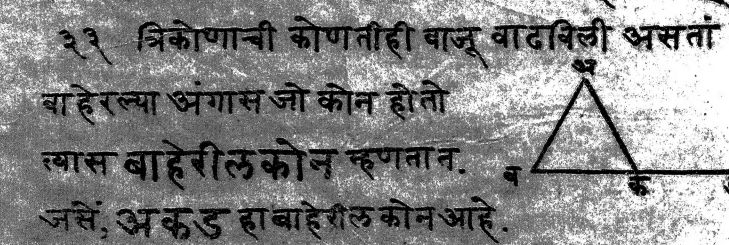 ३३ त्रिकोणाची कोणतीही बाजू वाढविली असतां
बाहेरल्या अंगास जो कोन होतो
त्यास बाहेरील कोन म्हणतात.
जसें, अकड हा बाहेरील कोन आहे.
अ
ब
क